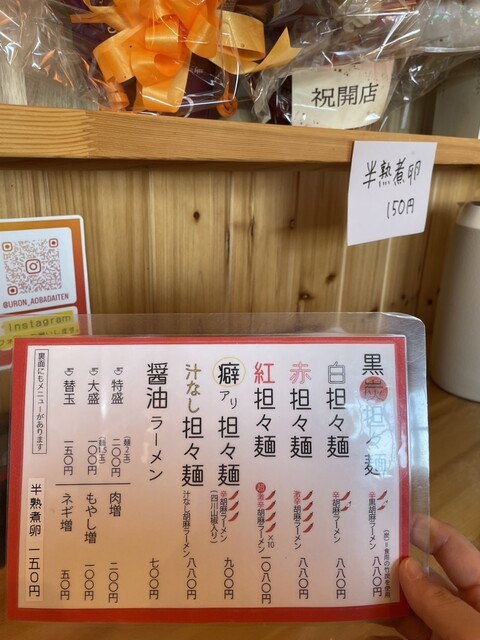 祝開店
半熟煮卵
150円
@URON_AOBADAITEN
Instagram
黒炭担々麺
辛黒胡麻ラーメン
(炭)=食用の竹炭を使用
八八〇円
白担々麺
辛胡麻ラーメン
八八〇円
赤担々麺
激辛胡麻ラーメン
八八〇円
紅担々麺
超激辛胡麻ラーメン
×10
一〇八〇円
癖アリ担々麺
辛胡麻ラーメン
(四川花椒入り)
九〇〇円
汁なし担々麺
汁なし胡麻ラーメン
八八〇円
醤油ラーメン
七〇〇円
特盛
(麺2玉)
二〇〇円
肉増
二〇〇円
大盛
(麺1.5玉)
一〇〇円
もやし増
一〇〇円
替玉
一五〇円
ネギ増
五〇円
裏面にもメニューがあります
半熟煮卵 一五〇円